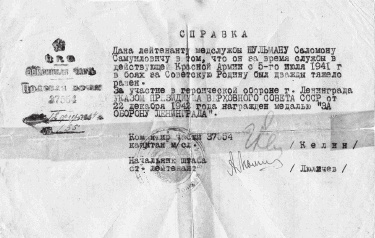 СПРАВКА
Дана лейтенанту медслужбы ШУЛЬМАНУ Саломону
Самуиловичу в том, что он за время службы в
действующей Красной Армии с 5-го июля 1941 г
в боях за Советскую Родину был дважды тяжело
ранен.
За участие в героической обороне г. Ленинграда
УКАЗОМ ПРЕЗИДИУМА ВЕРХОВНОГО СОВЕТА СССР от
22 декабря 1942 года награжден медалью "ЗА
ОБОРОНУ ЛЕНИНГРАДА".
Командир части
капитан м/сл. / Келин /
Начальник штаба
ст. лейтенант